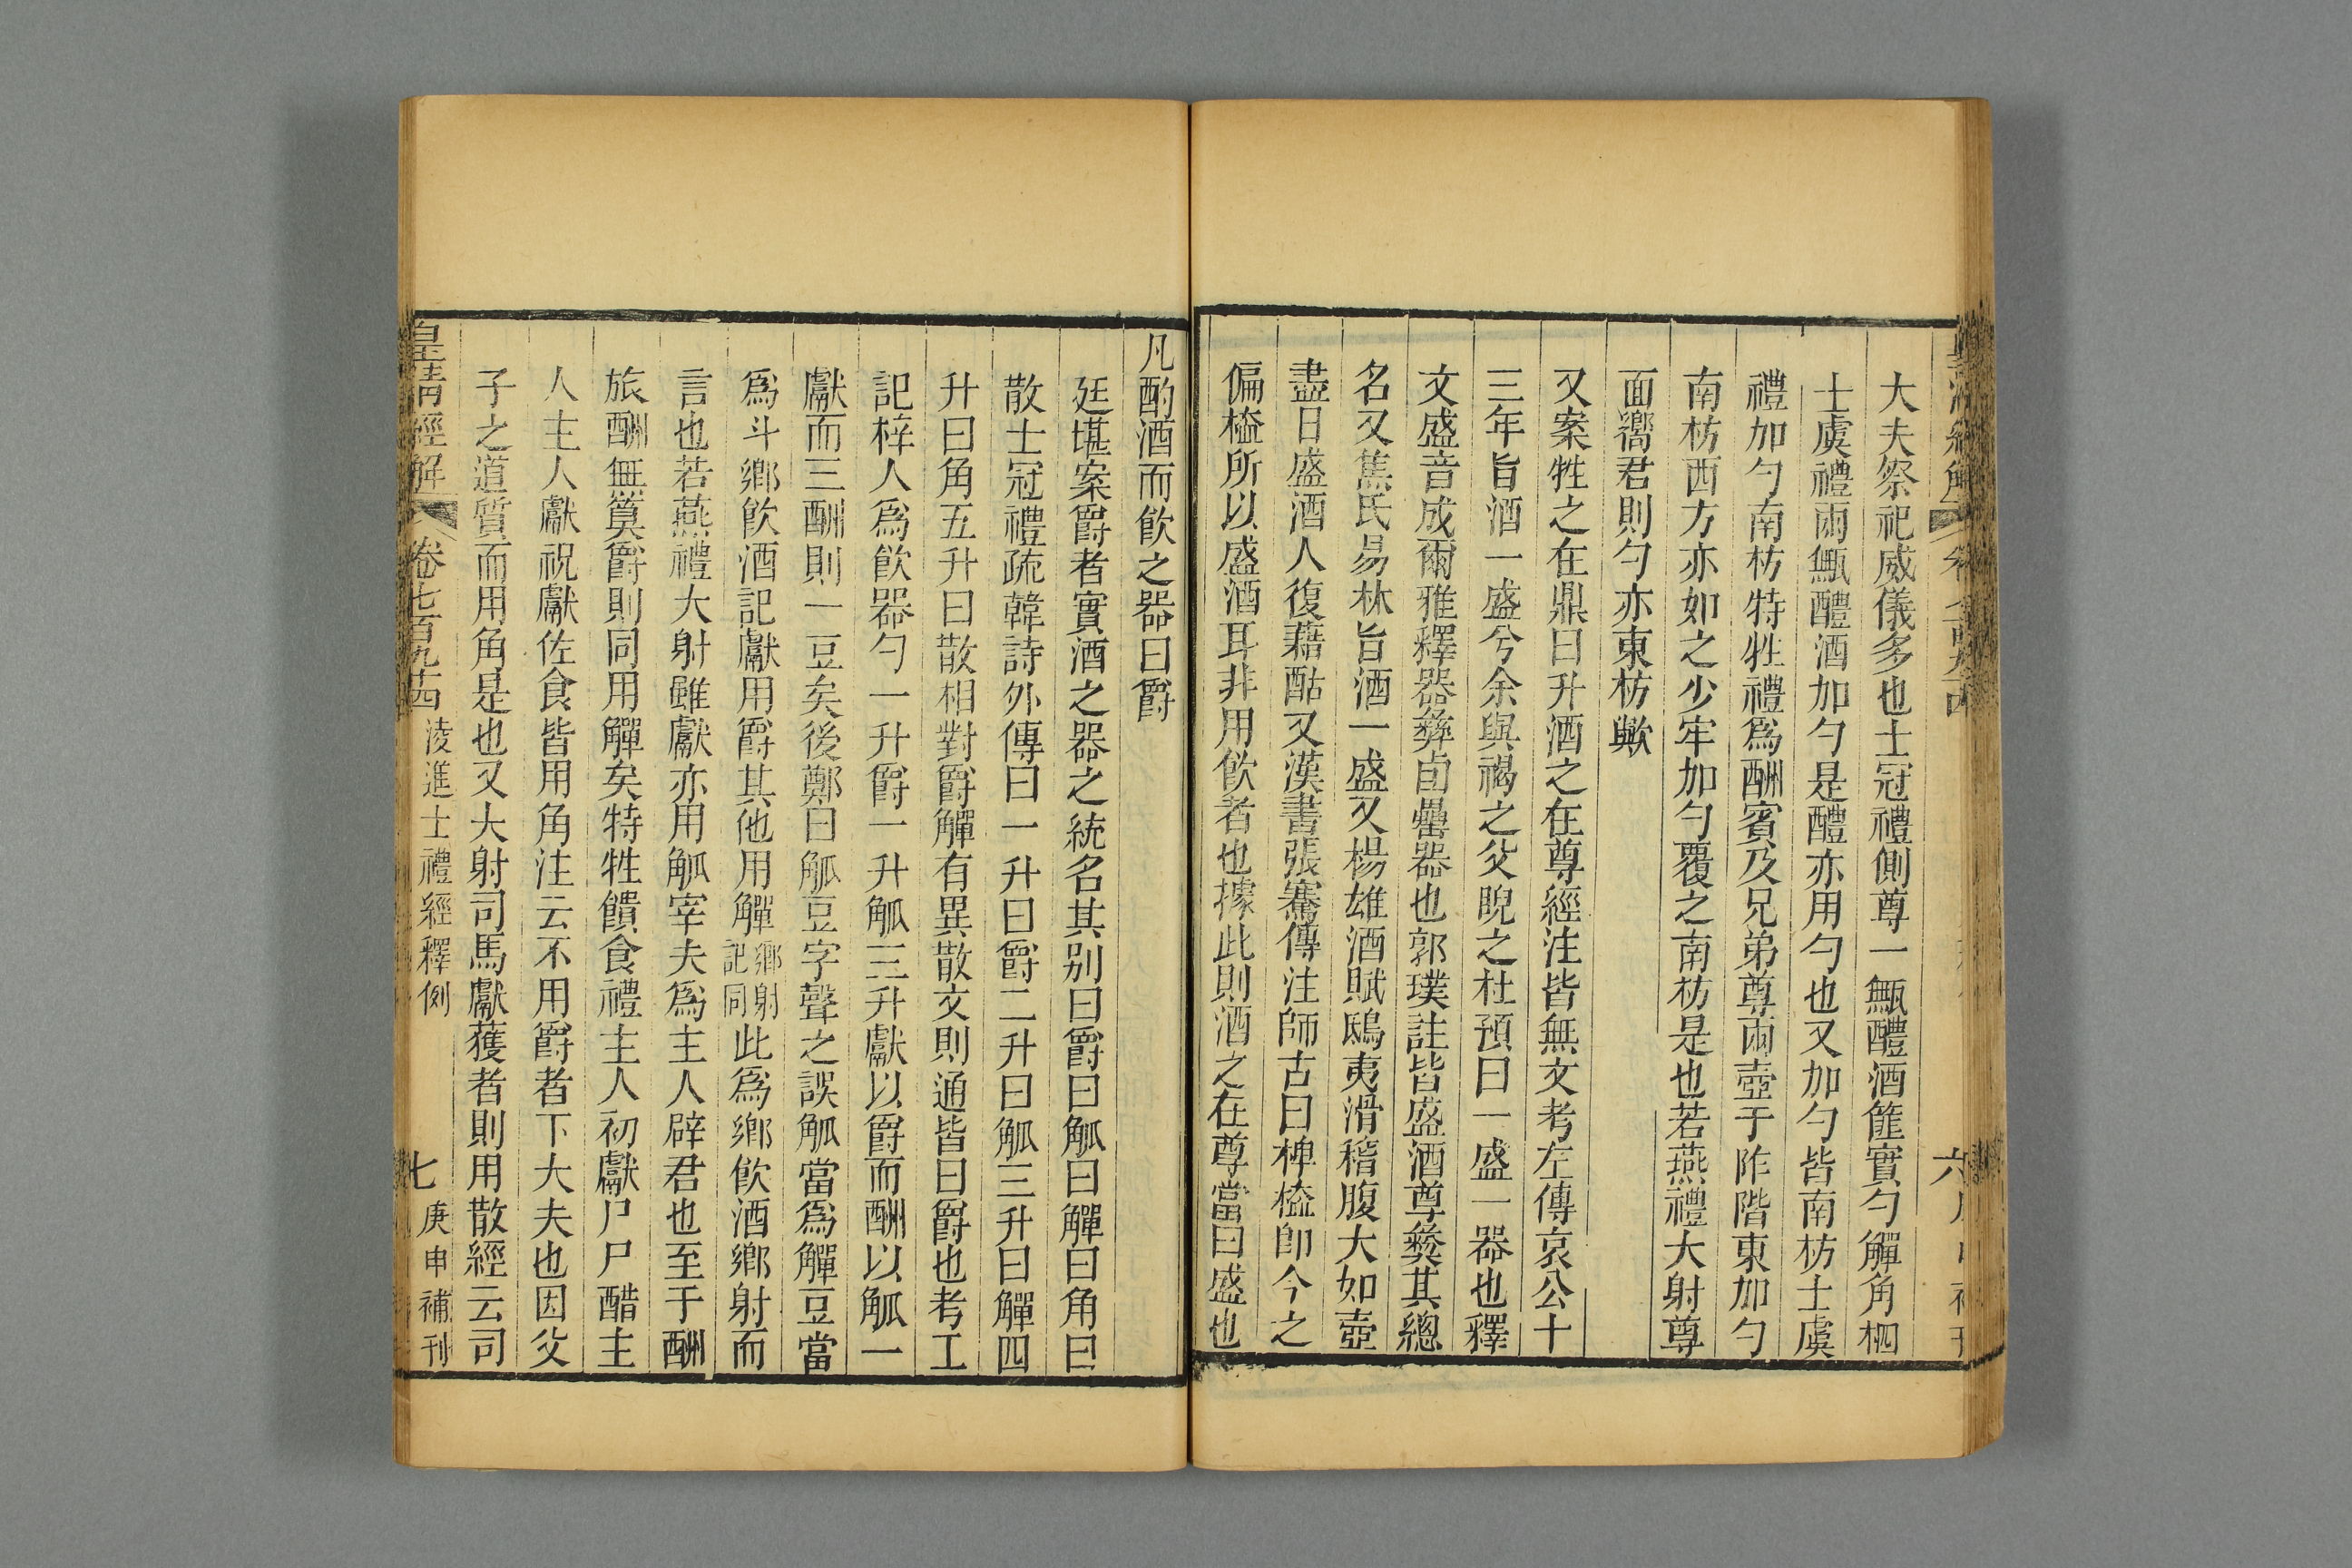 大夫祭祀威儀多也士冠禮側尊一甒醴酒篚實勺觶角柶
士虞禮兩甒醴酒加勺是醴亦用勺也又加勺皆南枋士虞
禮加勺南枋特牲禮爲酬賓及兄弟尊兩壺于阼階東加勺
南枋西方亦如之少牢加勺覆之南枋是也若燕禮大射尊
面嚮君則勺亦東枋歟
又案牲之在鼎曰升酒之在尊經注皆無文考左傳哀公十
三年旨酒一盛兮余與褐之父睨之杜預曰一盛一器也釋
文盛音成爾雅釋器彝卣罍器也郭璞註皆盛酒尊彝其總
名又焦氏易林旨酒一盛又楊雄酒賦鴟夷滑稽腹大如壺
盡日盛酒人復藉酤又漢書張騫傳注師古曰椑榼卽今之
偏榼所以盛酒耳非用飮者也據此則酒之在尊當曰盛也
凡酌酒而飮之器曰爵
廷堪案爵者實酒之器之統名其別曰爵曰觚曰觶曰角曰
散士冠禮疏韓詩外傳曰一升曰爵二升曰觚三升曰觶四
升曰角五升曰散相對爵觶有異散文則通皆曰爵也考工
記梓人爲飮器勺一升爵一升觚三升獻以爵而酬以觚一
獻而三酬則一豆矣後鄭曰觚豆字聲之誤觚當爲觶豆當
爲斗鄉飮酒記獻用爵其他用觶鄉射記同此爲鄉飮酒鄉射而
言也若燕禮大射雖獻亦用觚宰夫爲主人辟君也至于酬
旅酬無筭爵則同用觶矣特牲饋食禮主人初獻尸尸醋主
人主人獻祝獻佐食皆用角注云不用爵者下大夫也因父
子之道質而用角是也又大射司馬獻獲者則用散經云司
皇清經解 卷七百九十四 淩進士禮經釋例 七 庚申補刊